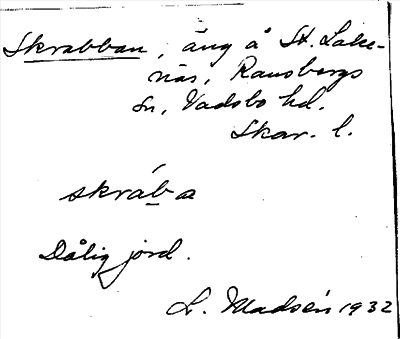 Skrabban, äng å St. Lake-
näs, Ransbergs
sn, Vadsbo hd.
Skar. l.
skráb a
Dålig jord.
L. Madsén 1932